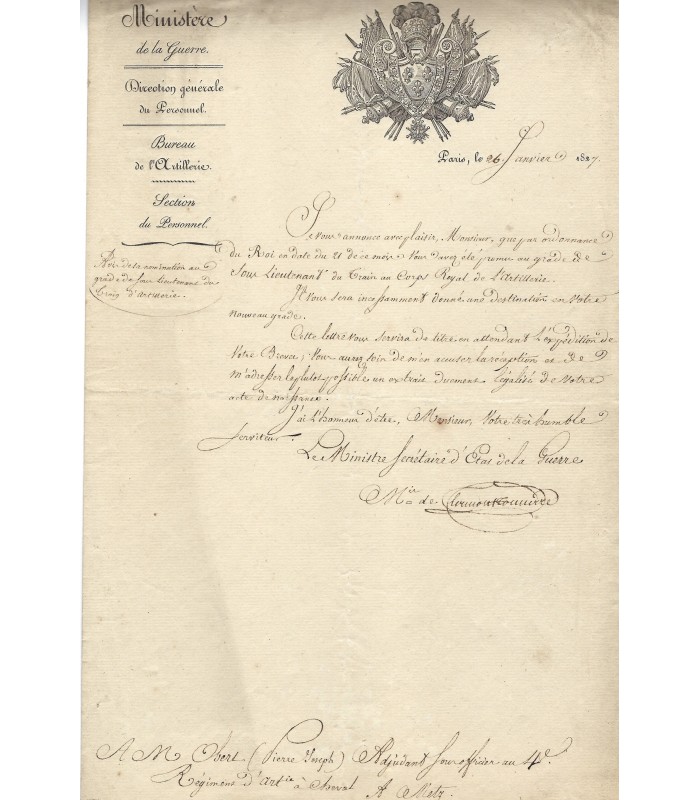 Ministère
de la Guerre.
Direction générale
du Personnel.
Bureau
de l'Artillerie.
Section
du Personnel.
Paris, le 26 Janvier 1827.
Je vous annonce avec plaisir, Monsieur, que par ordonnance
du Roi en date du 21 de ce mois, Vous avez été promu au grade de
Sous Lieutenant du Train au Corps Royal de L'Artillerie.
Il vous sera incessamment donné une destination en Votre
nouveau grade.
Cette lettre vous servira de titre en attendant L'expédition de
Votre Brevet; Vous aurez soin de m'en accuser la réception et de
m'adresser le plutot possible un extrait duement Légalisé de Votre
acte de naissance.
J'ai L'honneur d'être, Monsieur, Votre très humble
Serviteur.
Le Ministre Secrétaire d'Etat de la Guerre
Mis de Clermont Tonnerre
de sa nomination au
grade de sous Lieutenant du
train d'artillerie.
A M Obert (Pierre Joseph) Adjudant Sous officier au 4e
Régiment d'Artie à cheval
A Metz.